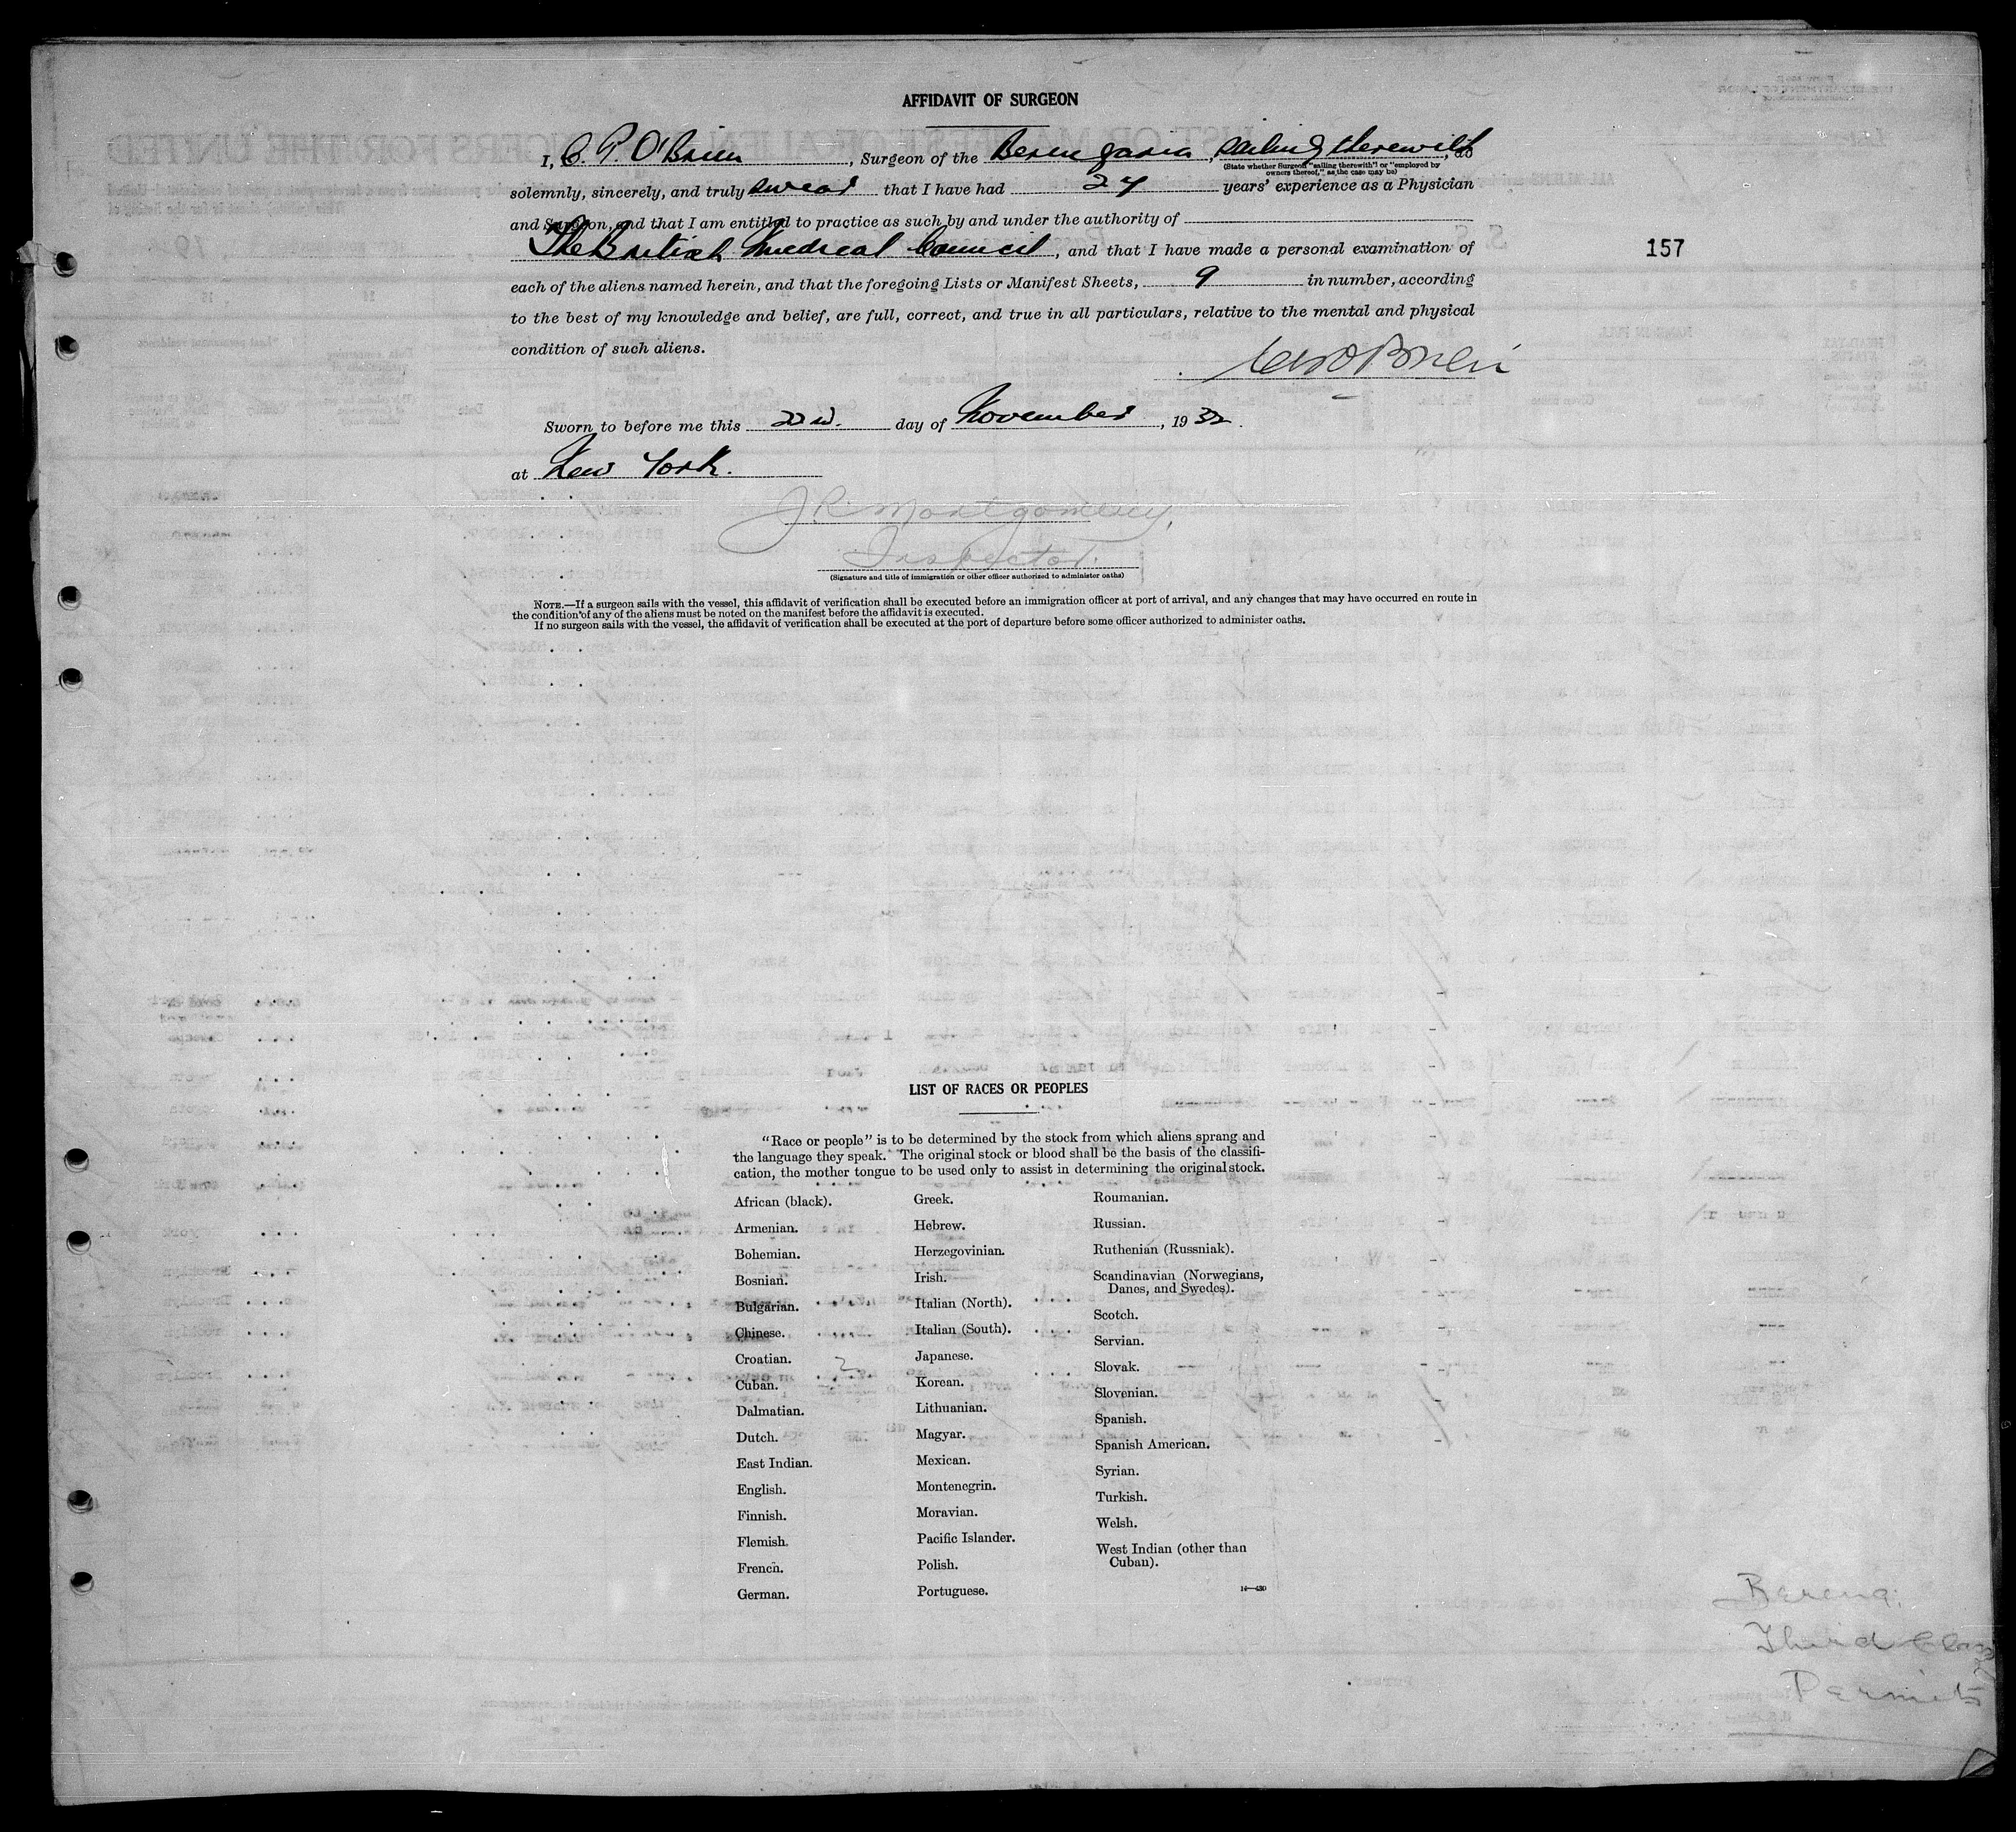 AFFIDAVIT OF SURGEON
I, C. P. O'Brien, Surgeon of the Berengaria, sailing therewith, do
(State whether Surgeon "sailing therewith" or "employed by
owners thereof," as the case may be)
solemnly, sincerely, and truly swear that I have had 24 years' experience as a Physician
and Surgeon, and that I am entitled to practice as such by and under the authority of
The British Medical Council, and that I have made a personal examination of
157
each of the aliens named herein, and that the foregoing Lists or Manifest Sheets, 9 in number, according
to the best of my knowledge and belief, are full, correct, and true in all particulars, relative to the mental and physical
condition of such aliens.
O'Brien
Sworn to before me this 22nd. day of November, 1932.
at New York.
J R Montgomery,
Inspector.
(Signature and title of immigration or other officer authorized to administer oaths)
NOTE.—If a surgeon sails with the vessel, this affidavit of verification shall be executed before an immigration officer at port of arrival, and any changes that may have occurred en route in
the condition of any of the aliens must be noted on the manifest before the affidavit is executed.
If no surgeon sails with the vessel, the affidavit of verification shall be executed at the port of departure before some officer authorized to administer oaths.
LIST OF RACES OR PEOPLES
"Race or people" is to be determined by the stock from which aliens sprang and
the language they speak. The original stock or blood shall be the basis of the classifi-
cation, the mother tongue to be used only to assist in determining the original stock.
African (black).
Armenian.
Bohemian.
Bosnian.
Bulgarian.
Chinese.
Croatian.
Cuban.
Dalmatian.
Dutch.
East Indian.
English.
Finnish.
Flemish.
French.
German.
Greek.
Hebrew.
Herzegovinian.
Irish.
Italian (North).
Italian (South).
Japanese.
Korean.
Lithuanian.
Magyar.
Mexican.
Montenegrin.
Moravian.
Pacific Islander.
Polish.
Portuguese.
Roumanian.
Russian.
Ruthenian (Russniak).
Scandinavian (Norwegians,
Danes, and Swedes).
Scotch.
Servian.
Slovak.
Slovenian.
Spanish.
Spanish American.
Syrian.
Turkish.
Welsh.
West Indian (other than
Cuban).
14—430
Bereng:
Third Class
Permits